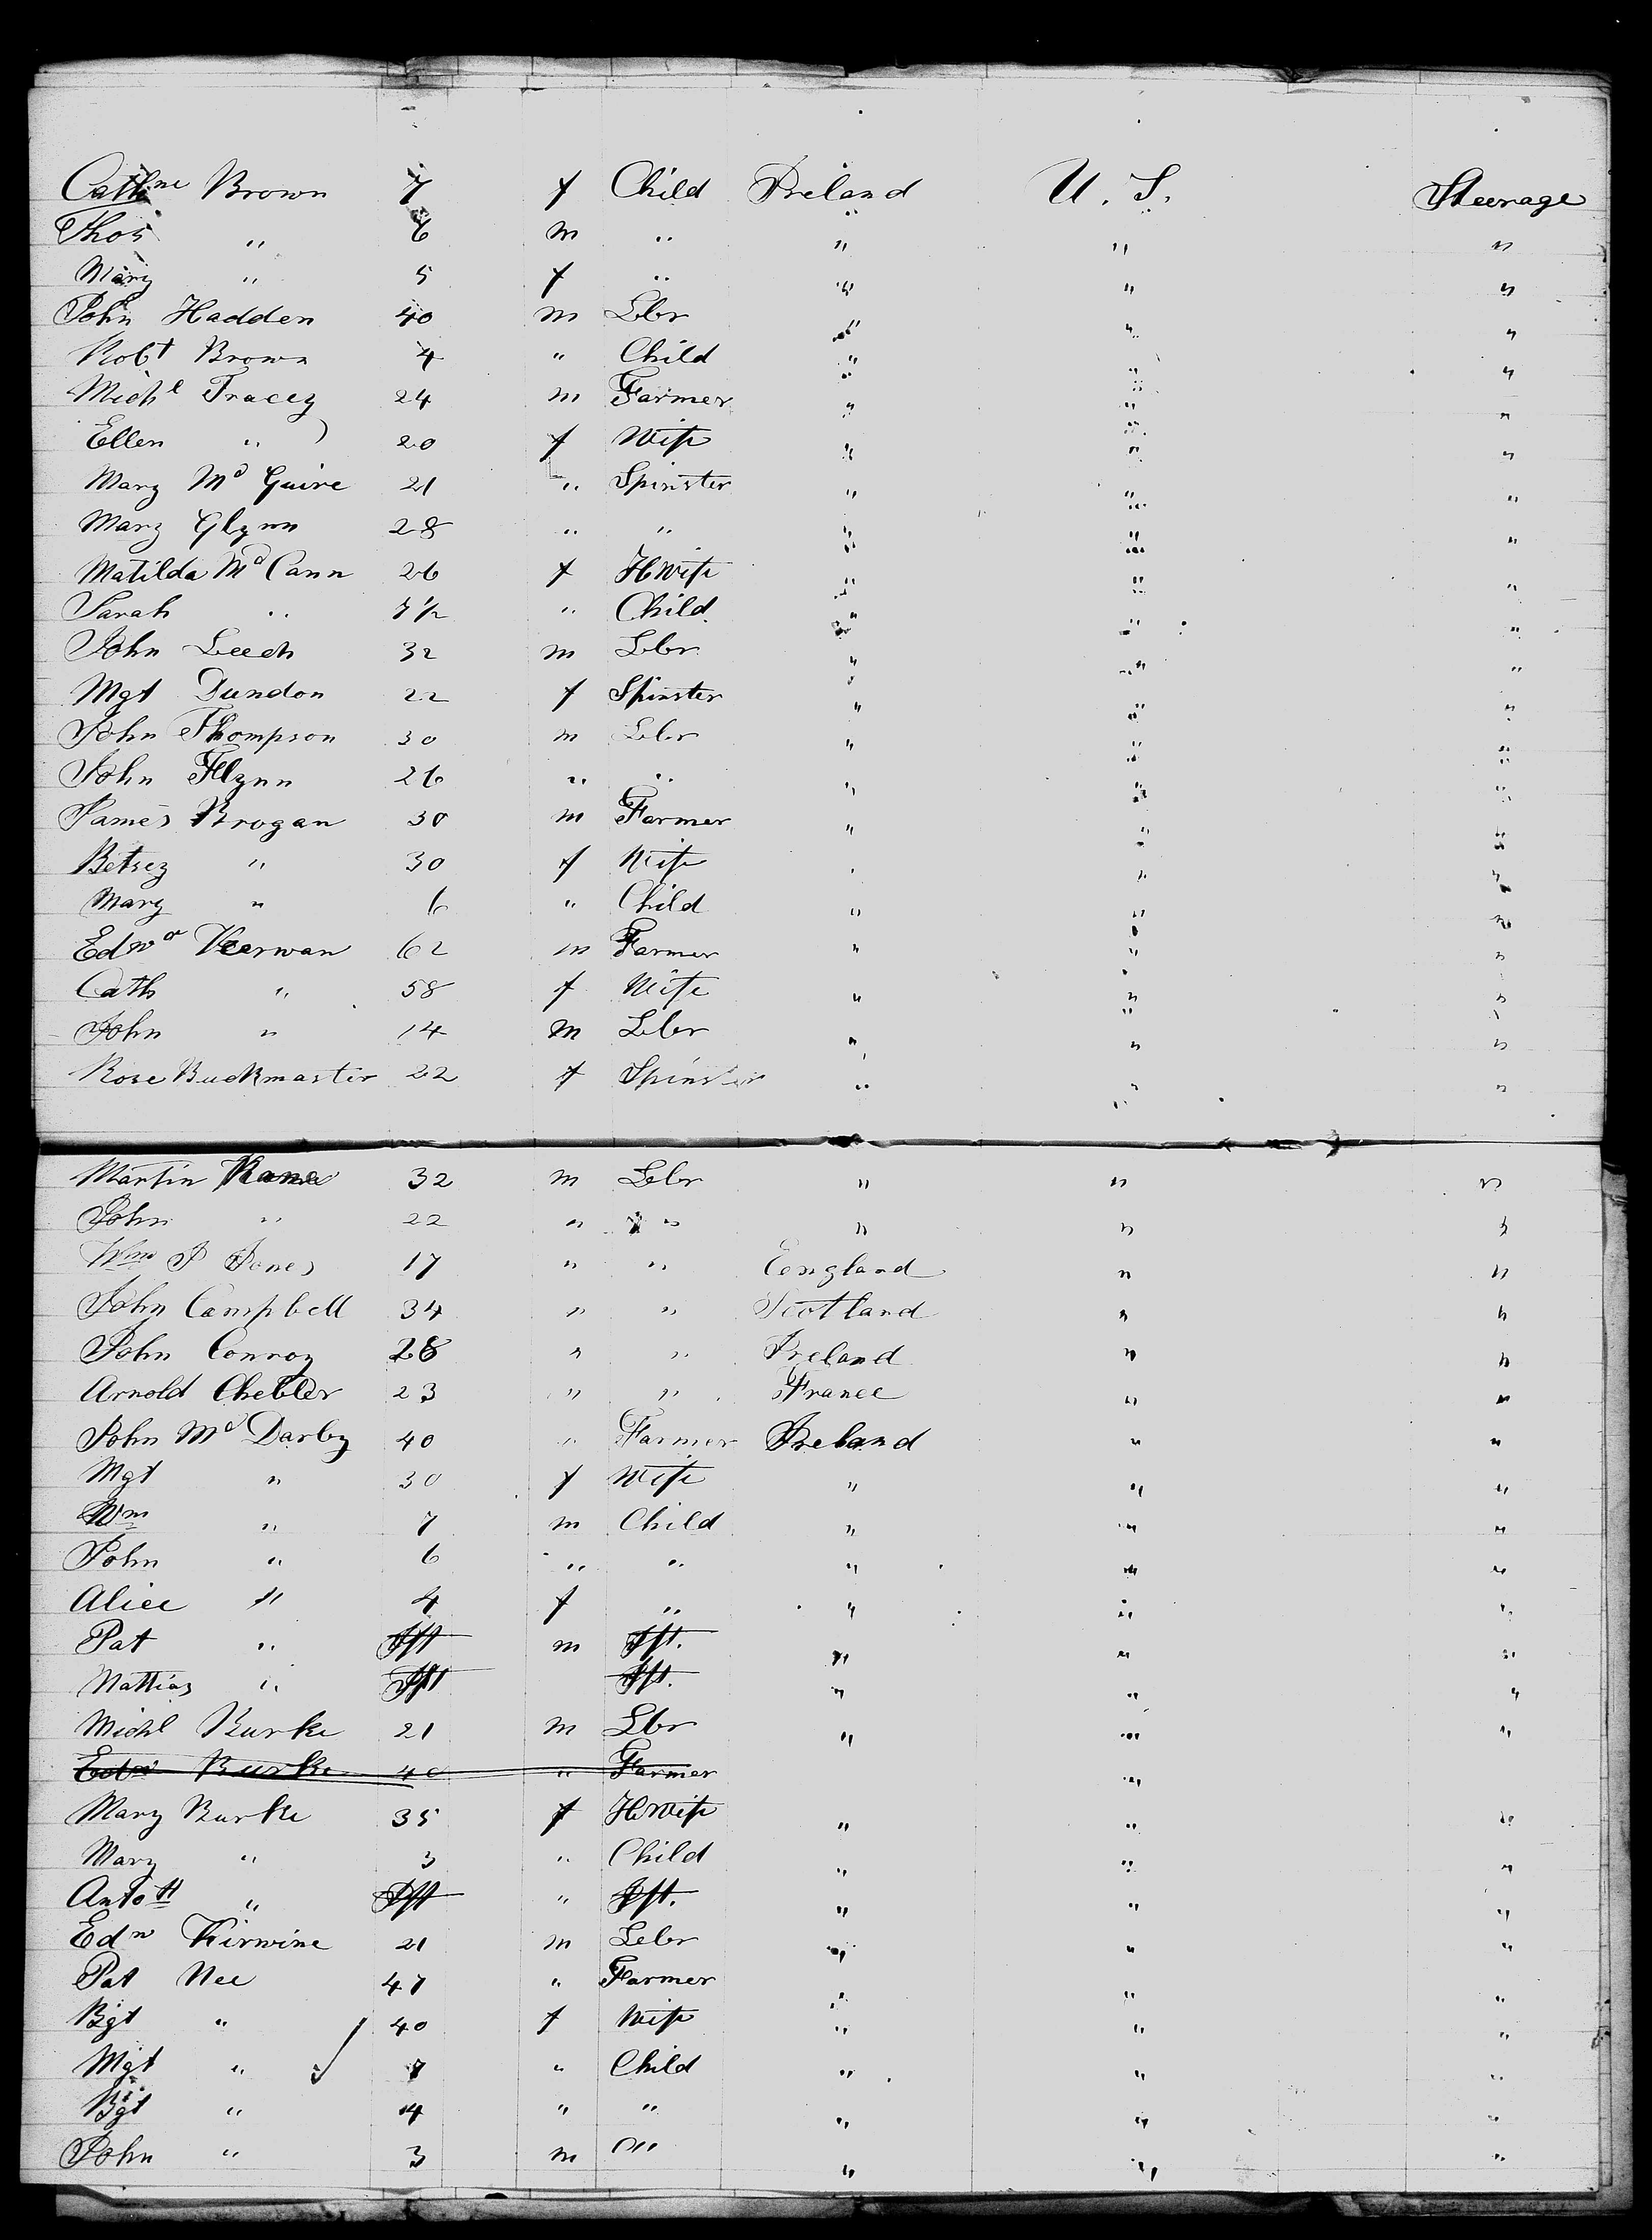 Cathne Brown 7 f Child Ireland U. S. Steerage
Thos " 6 m " " " "
Mary " 5 f " " " "
John Hadden 40 m Lbr " " "
Robt Brown 4 " Child " " "
Michl Tracey 24 m Farmer " " "
Ellen " 20 f Wife " " "
Mary Mc Guire 21 " Spinster " " "
Mary Glynn 28 " " " " "
Matilda Mc Cann 26 f HWife " " "
Sarah " 7 1/2 " Child " " "
John Leech 32 m Lbr " " "
Mgt Dundon 22 f Spinster " " "
John Thompson 30 m Lbr " " "
John Flynn 26 " " " " "
James Brogan 30 m Farmer " " "
Betsey " 30 f Wife " " "
Mary " 6 " Child " " "
Edwd Keerwan 62 m Farmer " " "
Cath " 58 f Wife " " "
John " 14 m Lbr " " "
Rose Buckmaster 22 f Spinster " " "
Martin Kane 32 m Lbr " " "
John " 22 " " " " "
Wm J Jones 17 " " England " "
John Campbell 34 " " Scotland " "
John Conroy 28 " " Ireland " "
Arnold Chebler 23 " " France " "
John Mc Darby 40 " Farmer Ireland " "
Mgt " 30 f Wife " " "
Wm " 7 m Child " " "
John " 6 " " " " "
Alice " 4 f " " " "
Pat " Ift m Ift. " " "
Mattias " Ift Ift. " " "
Michl Burke 21 m Lbr " " "
Edw Burke 40 " Farmer "
Mary Burke 35 f HWife " " "
Mary " 3 " Child " " "
Anto tt " Ift " Ift. " " "
Edw Kirwine 21 m Lbr " " "
Pat Nee 47 " Farmer " " "
Bgt " 40 f Wife " " "
Mgt " 7 " Child " " "
Bgt " 4 " " " " "
John " 3 m " " " "